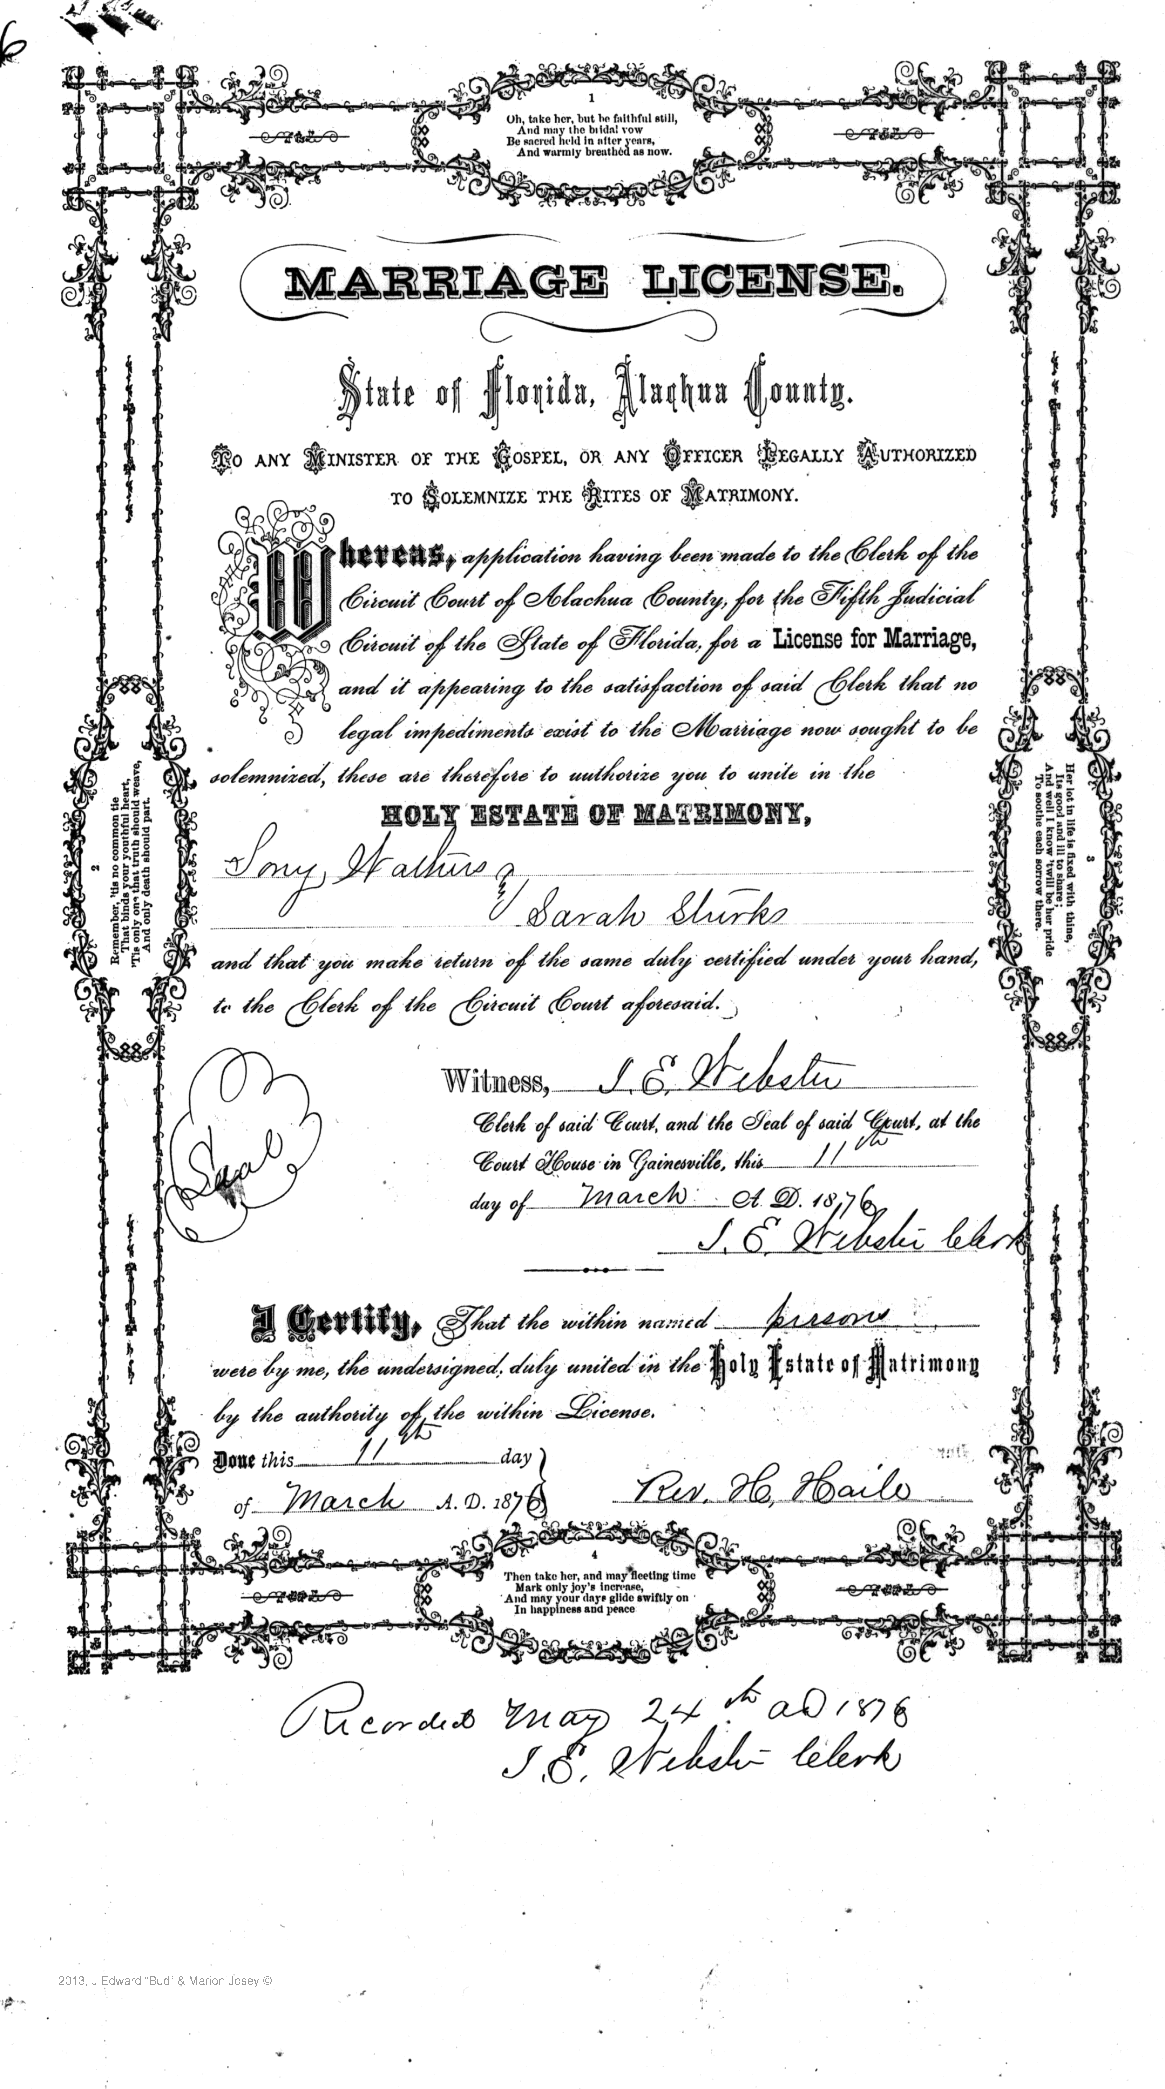 1
Oh, take her, but be faithful still,
And may the bridal vow
Be sacred held in after years,
And warmly breathed as now.
MARRIAGE LICENSE.
State of Florida, Alachua County.
TO ANY MINISTER OF THE GOSPEL, OR ANY OFFICER LEGALLY AUTHORIZED
TO SOLEMNIZE THE RITES OF MATRIMONY.
Whereas, application having been made to the Clerk of the
Circuit Court of Alachua County, for the Fifth Judicial
Circuit of the State of Florida, for a License for Marriage,
and it appearing to the satisfaction of said Clerk that no
legal impediments exist to the Marriage now sought to be
solemnized, these are therefore to authorize you to unite in the
HOLY ESTATE OF MATRIMONY,
Tony Walters &
Sarah Sturks
and that you make return of the same duly certified under your hand,
to the Clerk of the Circuit Court aforesaid.
2
Remember, 'tis no common tie
That binds your youthful heart,
'Tis only one that truth should weave,
And only death should part.
3
Her lot in life is fixed with thine,
Its good and ill to share;
And well I know 'twill be her pride
To soothe each sorrow there.
Seal
Witness, J. E. Webster
Clerk of said Court, and the Seal of said Court, at the
Court House in Gainesville, this 11th
day of March A. D. 1876
J. E. Webster Clerk
I Certify, That the within named persons
were by me, the undersigned, duly united in the Holy Estate of Matrimony
by the authority of the within License.
Done this 11th day
of March A. D. 1876
Rev. H. Haile
4
Then take her, and may fleeting time
Mark only joy's increase,
And may your days glide swiftly on
In happiness and peace
Recorded May 24th AD 1876
J. E. Webster Clerk
2013, J Edward "Bud" & Marion Josey ©